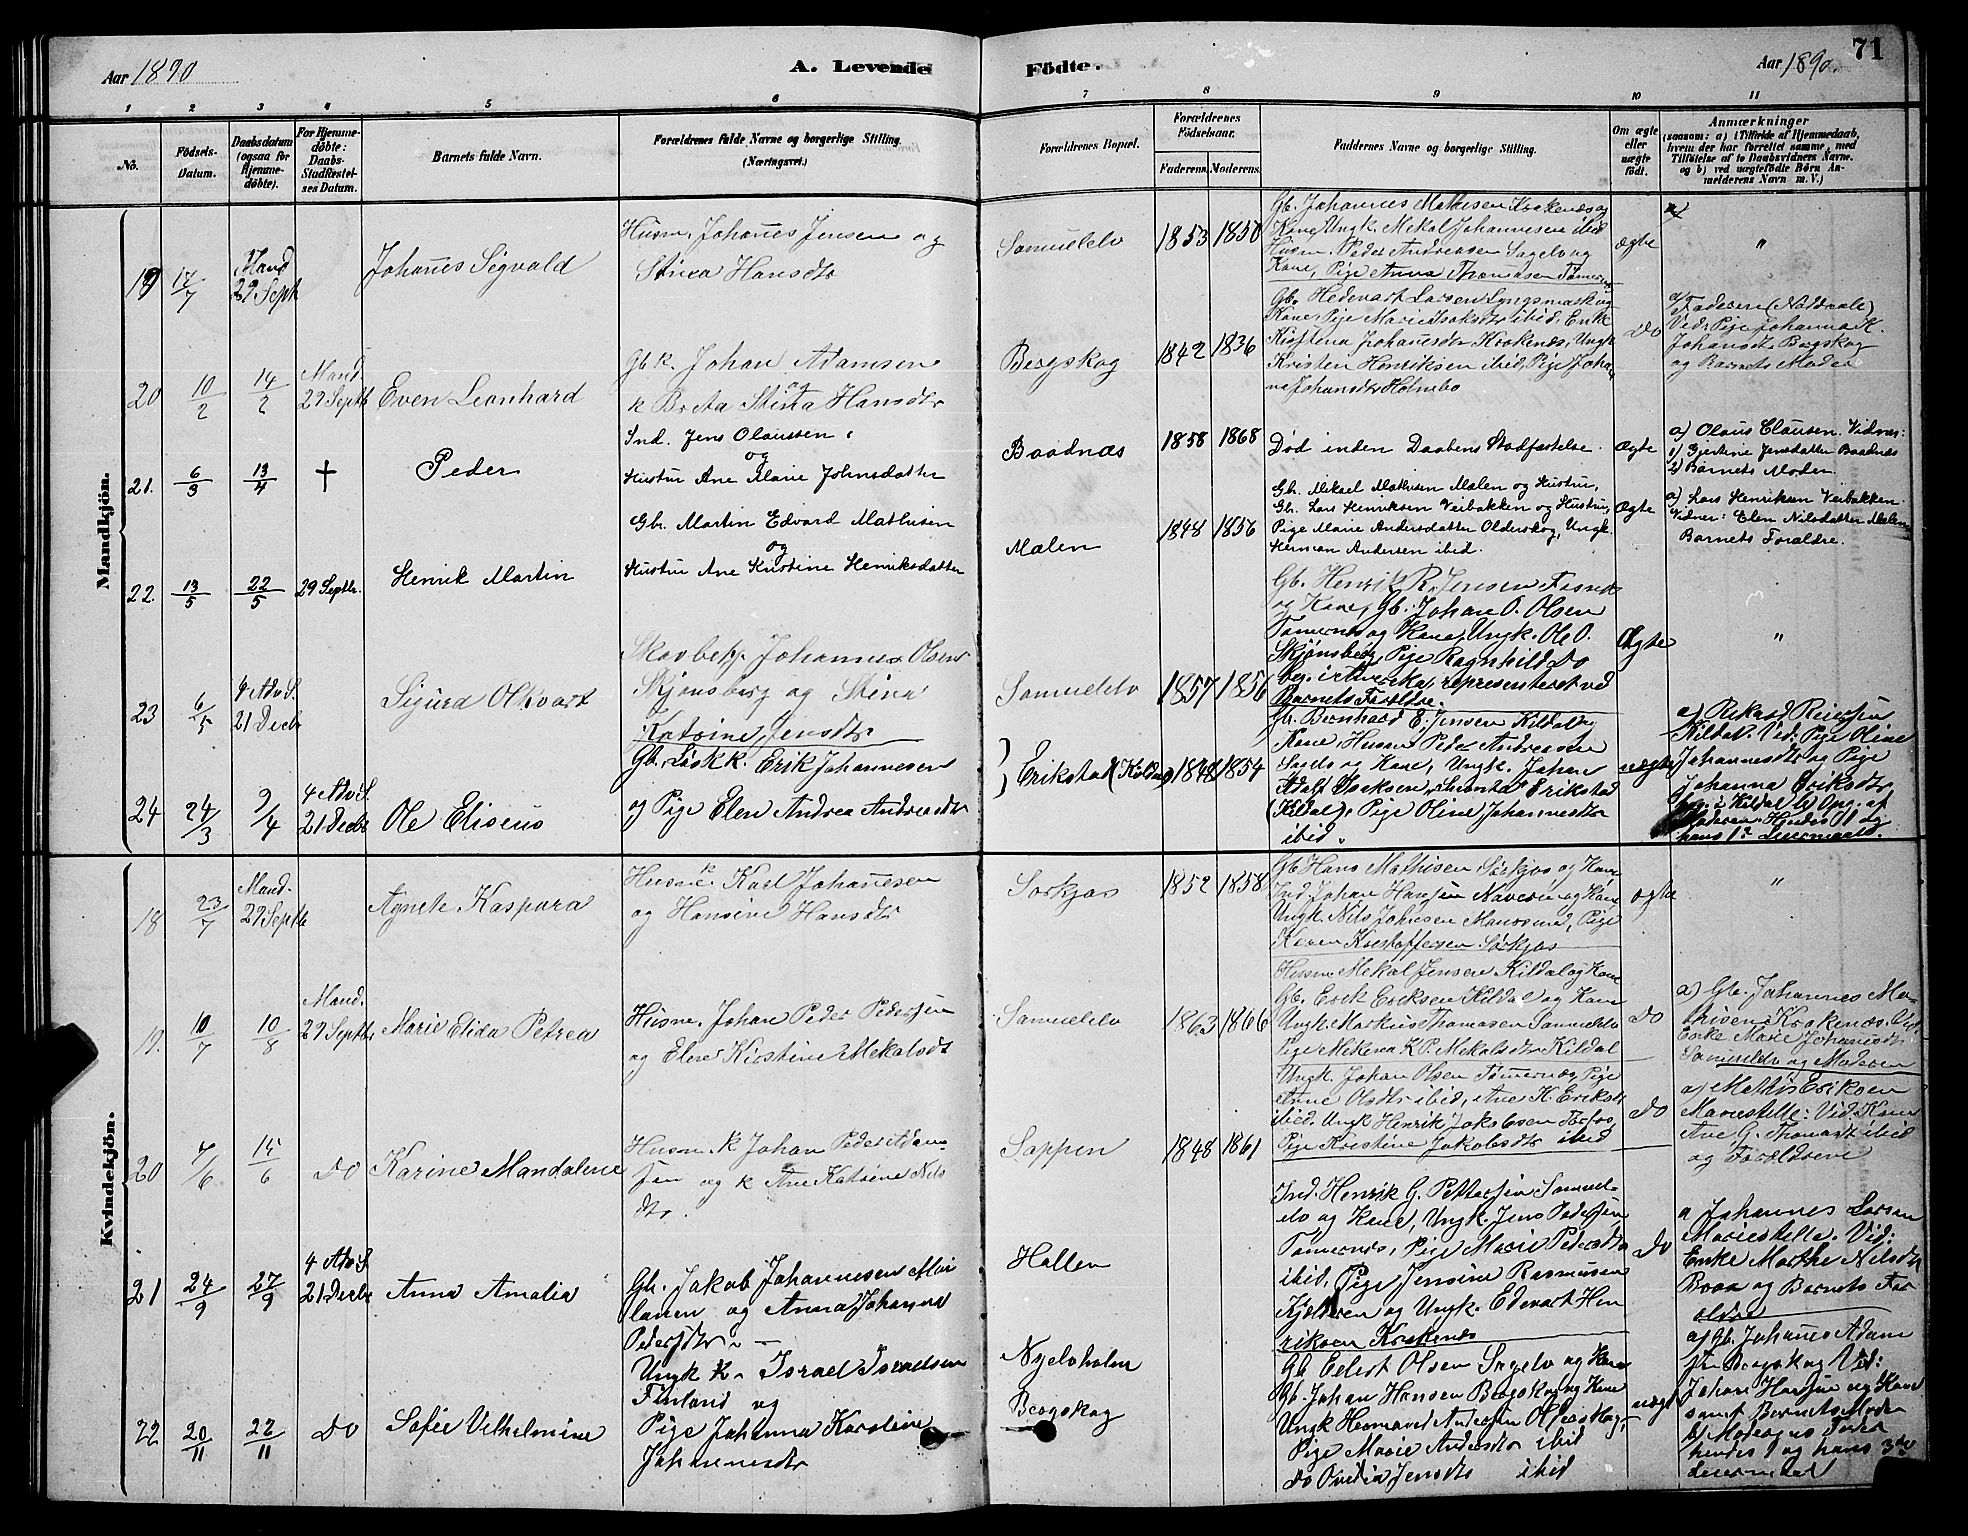 Aar 1890
A. Levende
Födte.
Aar 1890.
71
1 2 3 4 5 6 7 8 9 10 11
No.
Födsels-
Datum.
Daabsdatum
(ogsaa for
Hjemme-
döbte).
For Hjemme-
döbte:
Daabs-
Stadfæstel-
ses Datum.
Barnets fulde Navn.
Forældrenes fulde Navne og borgerlige Stilling.
(Næringsvei.)
Forældrenes Bopæl.
Forældrenes
Födselsaar.
Faderens.
Moderens.
Faddernes Navne og borgerlige Stilling.
Om ægte
eller
uægte
födt.
Anmærkninger
(saasom: a) i Tilfælde af Hjemmedaab,
hvem der har forrettet samme, med
Tilföielse af to Daabsvidners Navne.
og b) ved uægtefödte Börn An-
melderens Navn m. V.)
Mandkjön.
19
17/7
Mand
29 Sept
Johanes Sigvald
Husm. Johanes Jensen og
Stina Hansdtr
Samuelelv
1853 1850
Gb. Johannes Mathisen Krokenæs og
Kone, Ungk. Mekal Johannesen ibid
Husm. Peder Andreasen Sagelv og
Kone, Pige Anna Thomasen Tömernes
ægte
"
20
10/2
14/2
Mand.
29 Septb
Even Leonhard
Gb. k. Johan Adamsen
og
k Brita Stina Hansdtr
Bergskog
1842 1836
Gb. Hedevart Larsen Lyngsmark og
Kone, Pige Marie Isaksdtr ibid, Enke
Kristina Johanesdtr Krokenæs, Ungk
Kristen Henriksen ibid, Pige Johan
ne Johansdtr Holmebo
Do
a/ Faderen
Vid: Pige Johanna K.
Johansdtr Bergskog
og Barnets Moder
21.
6/3
13/4
†
Peder
Ind. Jens Olaussen
og
Hustru Ane Marie Johnsdatter
Baadnæs
1858 1868
Död inden Daabens Stadfæstelse.
Ægte
a) Olaus Clausen. Vidnær:
1) Gjertine Jensdatter Baadnæs
2) Barnets Moder.
22.
13/5
22/5
29 Septbr.
Henrik Martin
Gbr. Martin Edvard Mathisen
og
Hustru Ane Kristine Henriksdatter
Malen
1848 1856
Gbr. Mikael Mathisen Malen og Hustru,
Gbr. Lars Henriksen Veibakken og Hustru,
Pige Marie Andersdatter Olderskog, Ungk.
Herman Andersen ibid.
Ægte
a) Lars Henriksen Veibakken.
Vidner: Elen Nilsdatter Malen
Barnets Forældre.
23
6/5
4 Adv S.
21 Decbr
Sigurd Olkvart
Johannes Olsen
Skjönsberg og Stina
Katrine Jensdtr
Samuelelv
1857 1856
Gb. Henrik R. Jensen
og Kone, Gb. Johan O. Olsen
Tömernes og Kone, Ungk. Ole O.
Skjönsberg, Pige Ragnhild Do
beg. i Amerika, representeret ved
Barnets Forældre.
Ægte
"
24
24/3
9/4
4 Adv S.
21 Decbr
Ole Eliseus
Gb. Læsk k. Erik Johannesen
og Pige Elen Andrea Andreasdtr
Erikstad (Kildal)
1848 1854
Gb. Bernhard E. Jensen Kildal og
Kone, Husm. Peder Andreasen
og Kone, Ungk. Johan
Adolf Isaksen, Erikstad
(Kildal), Pige Oline Johannesdtr
ibid.
uægte
a) Rikard Reiersen
Kildal. Vid: Pige Oline
Johannesdtr og Pige
Johanna Eriksdtr
beg. i Kildal b) Opg. af
Moderen. Hendes 1 og
hans 1ste Leiermaal.
Kvindekjön.
18
23/7
Mand.
29 Septb
Agnete Kaspara
Husm. Karl Johanesen
og Hansine Hansdtr
Sorkjos
1852 1858
Gb Hans Mathisen Sörkjos og Kone
Ind Johan Hansen og Kone
Ungk Nils Johnsen, Pige
Karen Kristoffersen Sörkjos
ægte
"
19.
10/7
10/8
Mand.
29 Septbr
Marie Elida Petrea
Husm. Johan Peder Pedersen
og Elen Kirstine Mekalsdt
Samuelelv
1863 1866
Husm Mekal Jensen Kildal og Kone
Gb. Erik Eriksen Kildal og Kone
Ungk. Markus Thomasen Samuelelv
Pige Mikena K. P. Mekalsdtr Kildal
Do
a) Gb. Johannes Ma-
thisen Krokenæs. Vid.
Enke Marie Johanesdtr
Samuelelv og Moderen
20
7/6
15/6
Do
Karine Mandalene
Husm. k Johan Peder Adam-
sen og k Ane Katrine Nils
dtr.
Sappen
1848 1861
Ungk. Johan Olsen Tömernes, Pige
Anne Olsdtr ibid, Ane K. Eriksdt
ibid. Ungk Henrik Jakobsen
Pige Kristine Jakobsdtr ibid
Do
a) Mathis Eriksen
Mariestelle: Vid: Kone
Ane G. Thomasdt ibid
og Forældrene
21
24/9
27/9
4 Adv S.
21 Decbr
Anna Amalia
Gb. Jakob Johannesen
og Anna Johanna
Pedersdtr. —
Hallen
Ind. Henrik G. Pettersen Samuel-
elv og Kone, Ungk. Jens Pedersen
Tömernes, Pige Marie Pedersdtr
ibid, Pige Jensine Rasmusen
Kjelleren og Ungk. Edevart Hen
riksen Krokenæs
Do
a Johannes Larsen
Mariestelle. Vid:
Enke Marthe Nilsdtr
og Barnets For
ældre
22
20/11
22/11
Do
Sofie Vilhelmine
Ungk k. Israel Israelsen
Finland og
Pige Johanna Karoline
Johannesdtr
Nyelvholm
Bergskog
Gb Edert Olsen Sagelv og Kone
Gb. Johan Hansen Bergskog og Kone
Ungk Hermand Andersen Olderskog,
Pige Marie Andersdtr ibid
Do Ovidia Jensdtr ibid
uægte
a/ Gb. Johannes Adam
sen Bergskog Vid:
Johan Hansen og Kone
samt Barnets Moder
b/ Moderens Fader
hendes 1 og hans 3de
Leiermaal